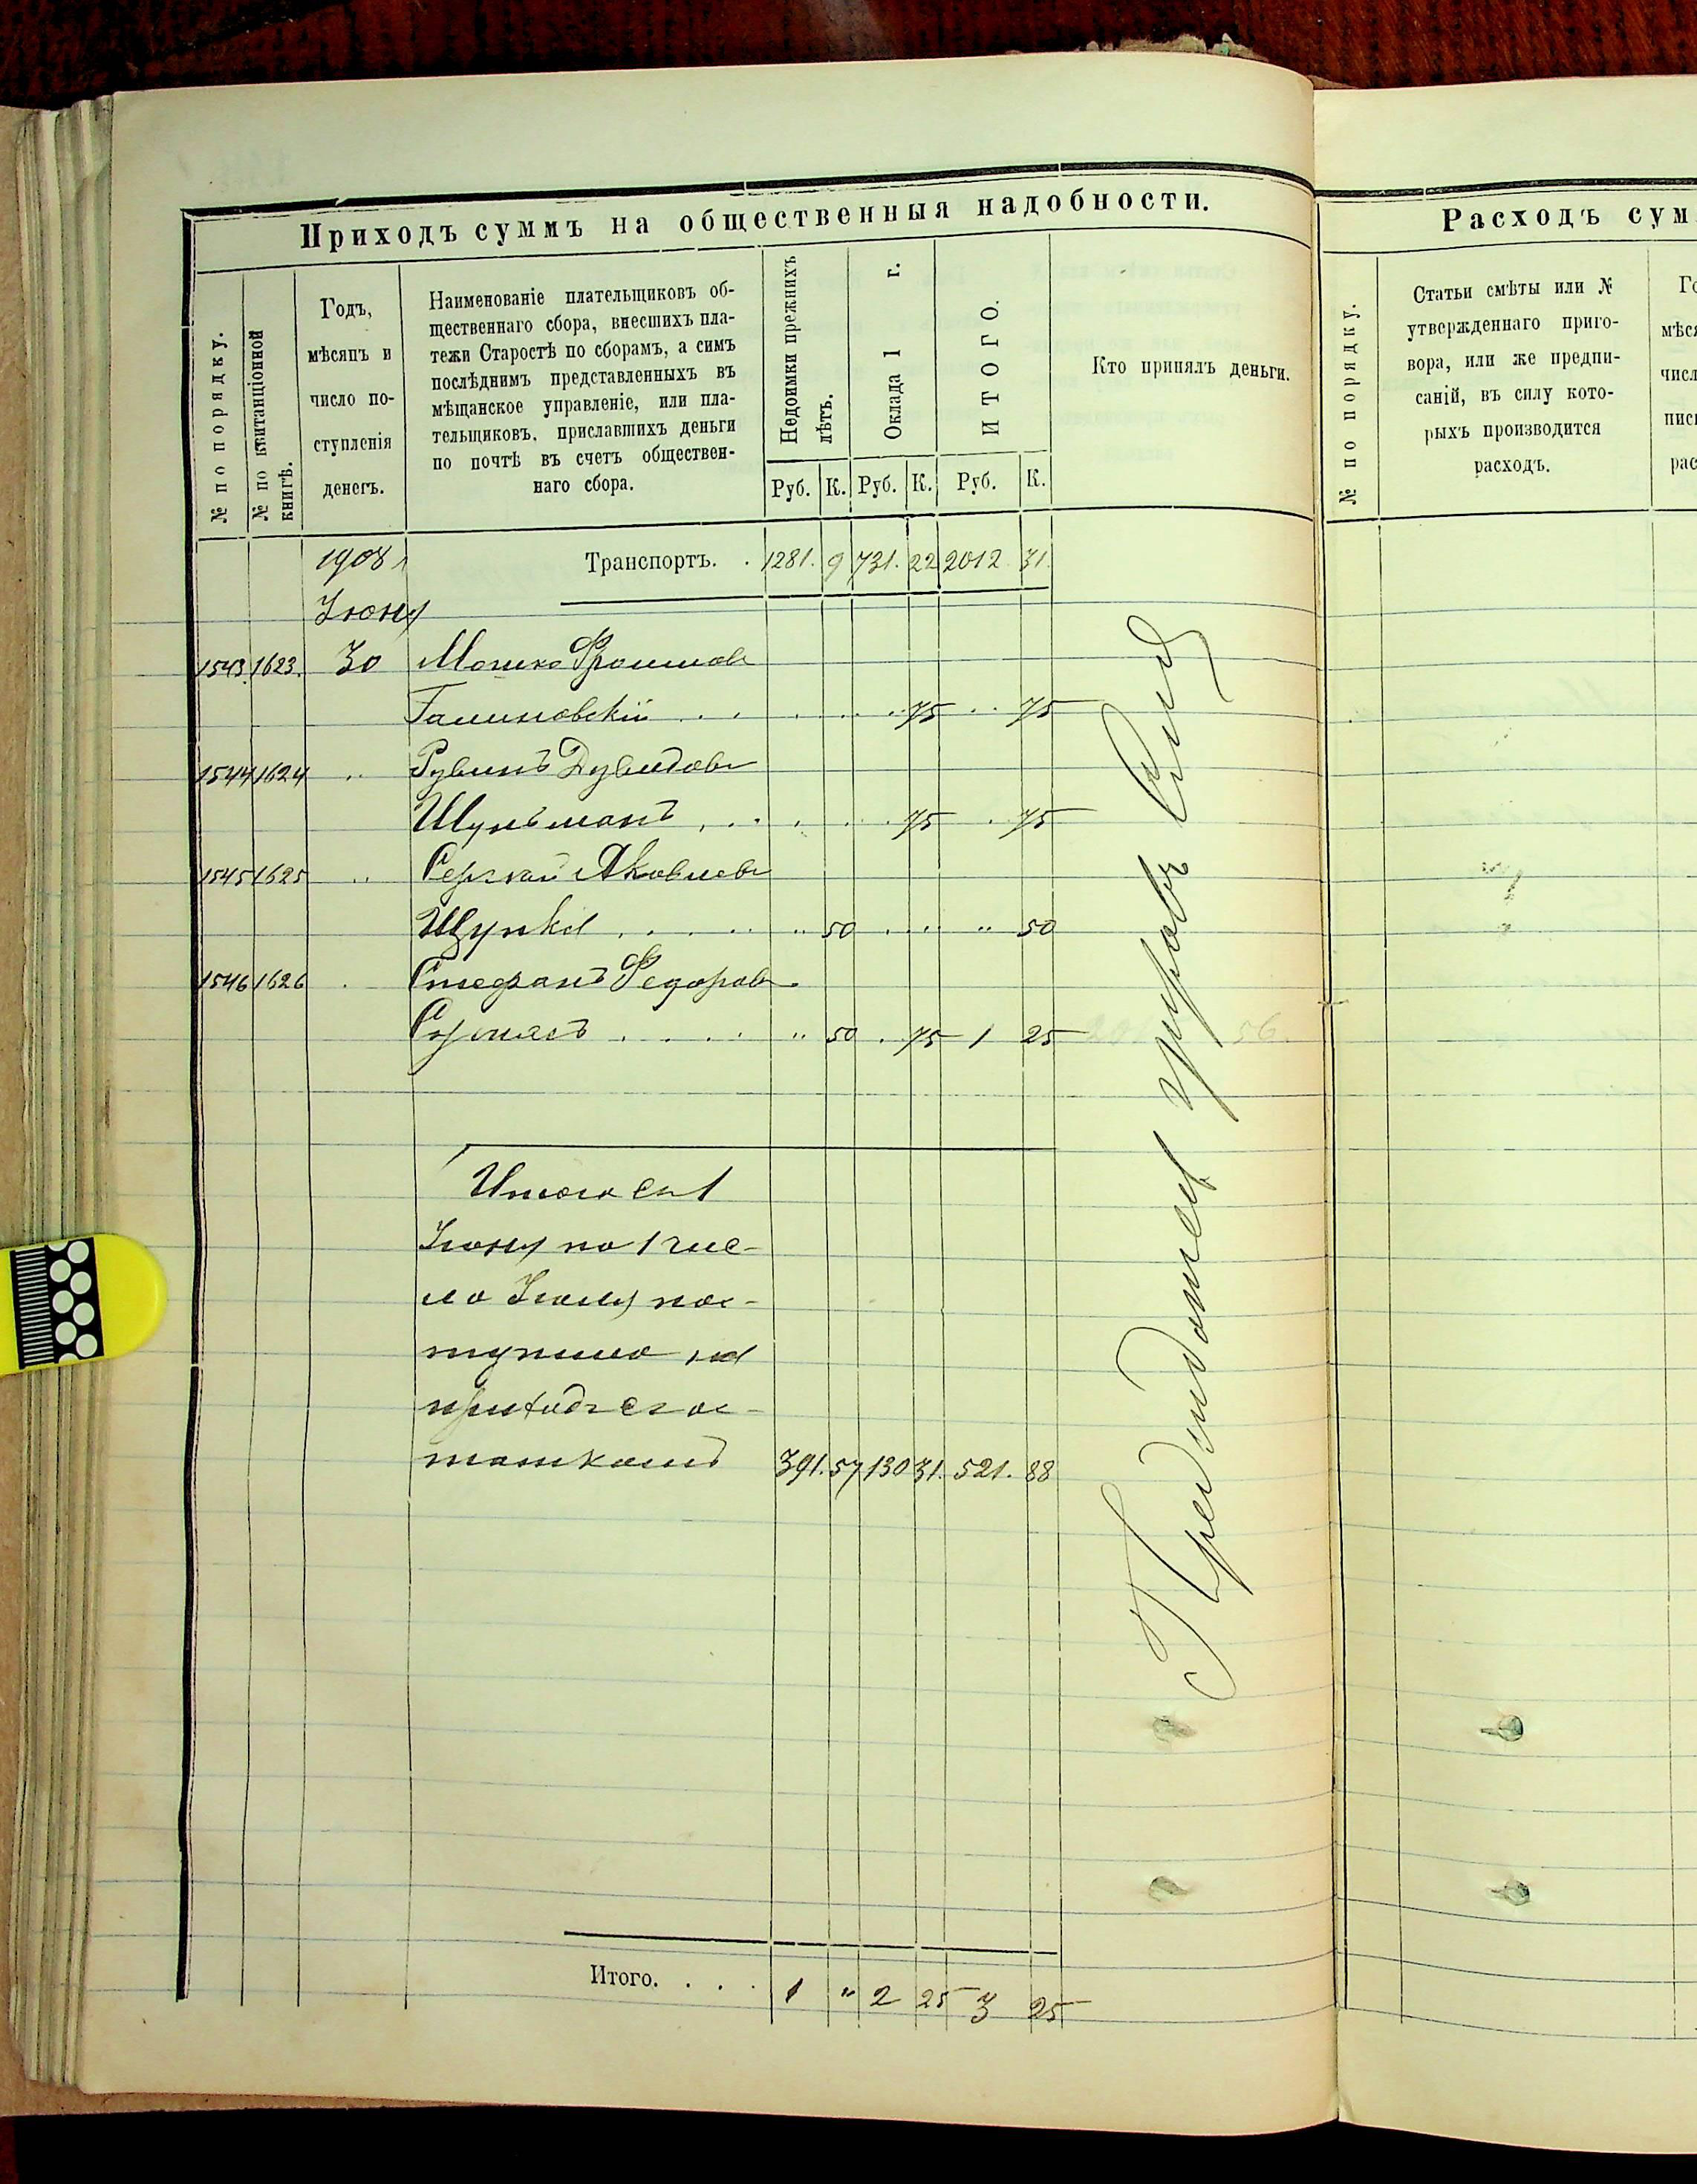 Приходъ суммъ на общественныя надобности.
№ по порядку.
№ по квитанціонной
книгѣ.
Годъ,
мѣсяцъ и
число по-
ступленія
денегъ.
Наименованіе плательщиковъ об-
щественнаго сбора, внесшихъ пла-
тежи Старостѣ по сборамъ, а симъ
послѣднимъ представленныхъ въ
мѣщанское управленіе, или пла-
тельщиковъ, приславшихъ деньги
по почтѣ въ счетъ обществен-
наго сбора.
Недоимки прежнихъ
лѣтъ.
Оклада 1 г.
ИТОГО.
Кто принялъ деньги.
Руб. К. Руб. К. Руб. К.
1908 Транспортъ. . 1281. 9 731. 22 2012. 31.
Іюня
1543. 1623. 30 Мошко
. . . . 75 . . 75
1544 1624 " Рувинъ Дувидовъ
Шульманъ . . . . 75 . 75
1545 1625 " Сергѣй Яковлевъ
Щупка . . . . " 50 . . . " 50
1546 1626 Стефанъ Федоровъ
. . . . " 50 . 75 1 25
Итого съ 1
Іюня по 1 чис-
ло Іюля пос-
тупило на
приходъ съ ос-
таткомъ 391. 57 130 31. 521. 88
Итого. . . . 1 " 2 25 3 25
Расходъ сум
№ по порядку.
Статьи смѣты или №
утвержденнаго приго-
вора, или же предпи-
саній, въ силу кото-
рыхъ производится
расходъ.
Го
мѣся
числ
писк
рас